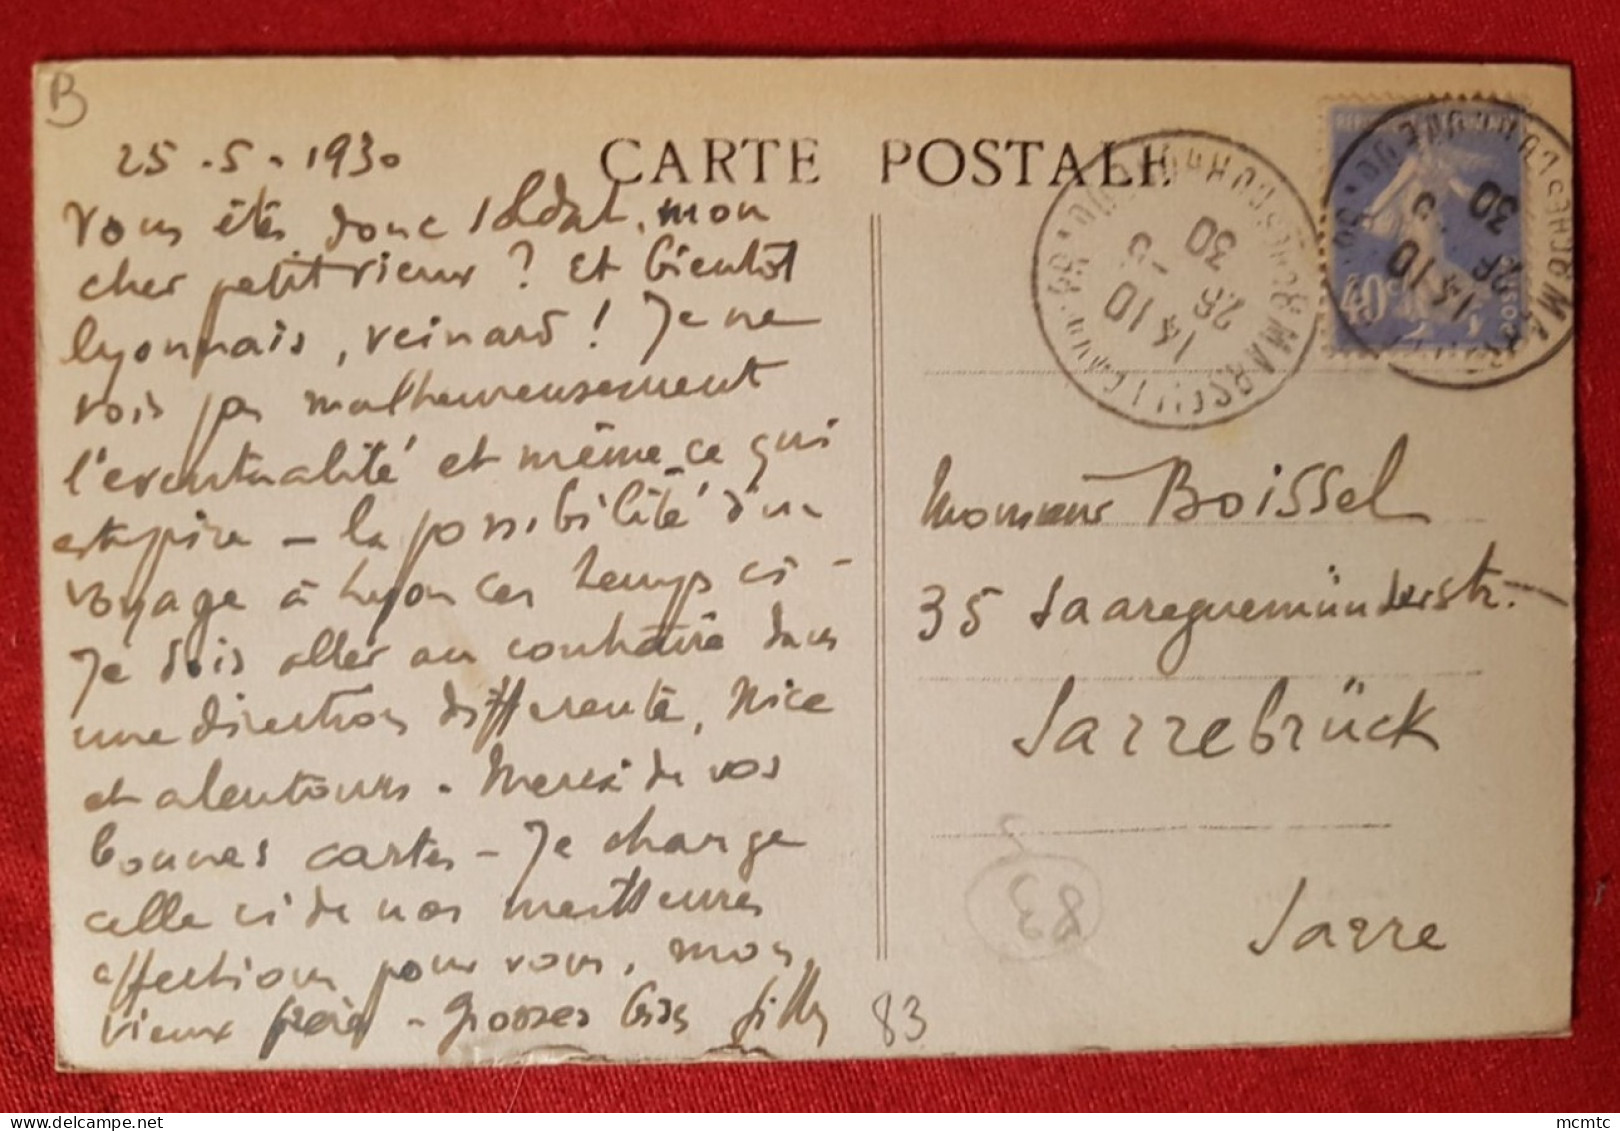 B
25.5.1930
CARTE POSTALE
Vous êtes donc soldat, mon
cher petit vieux ? Et bientôt
lyonnais, veinard ! Je ne
vois pas malheureusement
l'éventualité et même - ce qui
est pire - la possibilité d'un
voyage à Lyon ces temps ci -
Je dois aller au contraire dans
une direction différente, Nice
et alentours. Merci de vos
bonnes cartes - Je charge
celle ci de nos meilleures
affections pour vous, mon
vieux frère - Grosses bises
40c
14 10
26 - 5
30
14 10
26 5
30
Monsieur Boissel
35 Saareguemünderstr.
Sarrebrück
Sarre
83
83
mcmtc